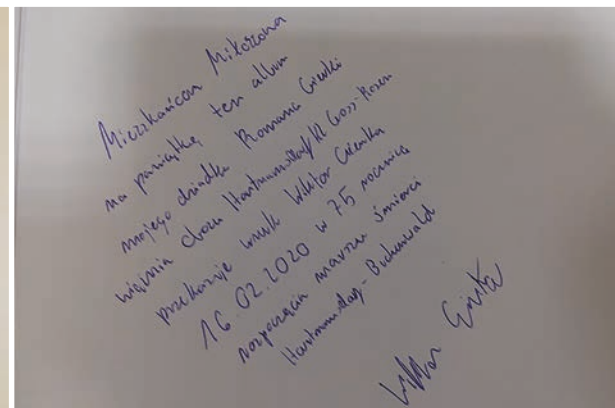 Mieszkańcom Mikorzona
na pamiątkę ten album
mojego dziadka Romana Gientki
więźnia obozu Hartmannsdorf/KL Gross-Rosen
przekazuje wnuk Wiktor Gientka
16.02.2020 w 75 rocznicę
rozpoczęcia marszu śmierci
Hartmannsdorf-Buchenwald